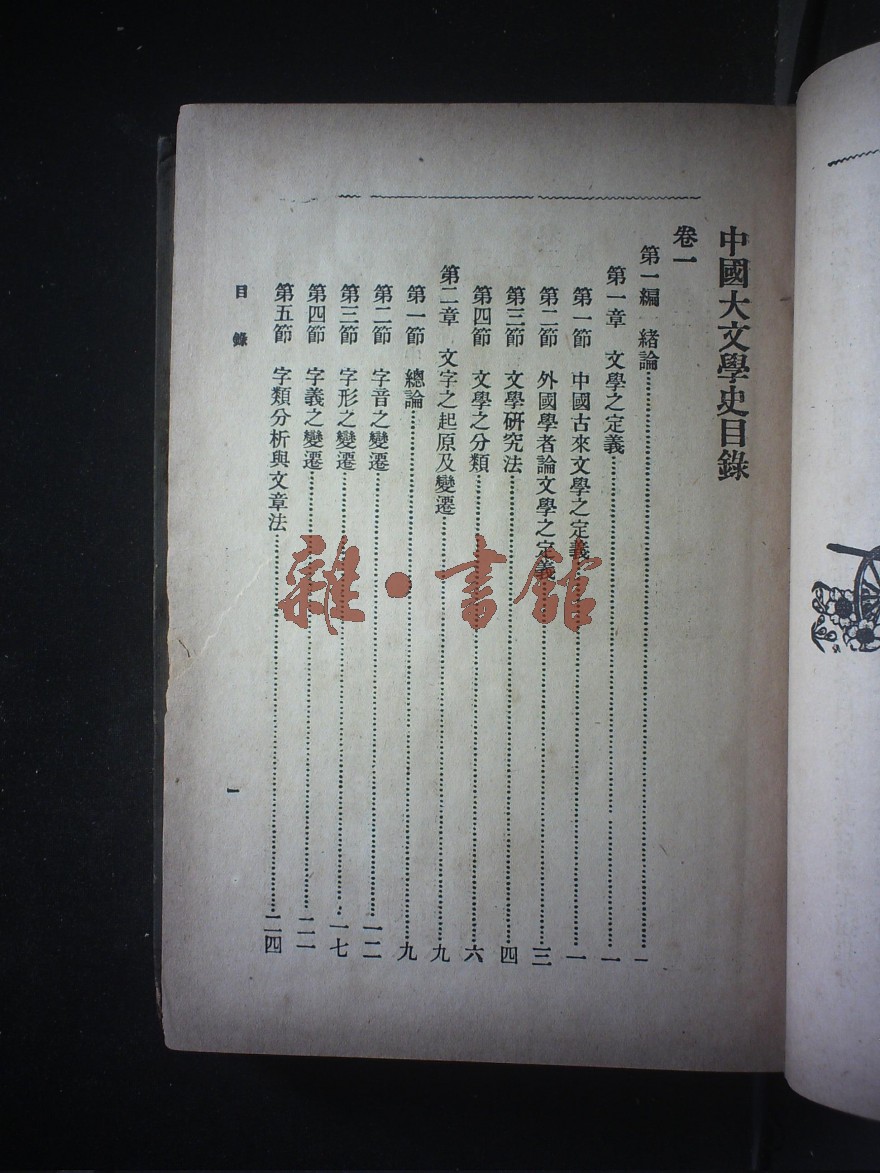 中國大文學史目錄
卷一
第一編 緒論…………一
第一章 文學之定義…………一
第一節 中國古來文學之定義…………一
第二節 外國學者論文學之定義…………三
第三節 文學研究法…………四
第四節 文學之分類…………六
第二章 文字之起原及變遷…………九
第一節 總論…………九
第二節 字音之變遷…………一二
第三節 字形之變遷…………一七
第四節 字義之變遷…………二一
第五節 字類分析與文章法…………二四
目錄
一
雜·書館